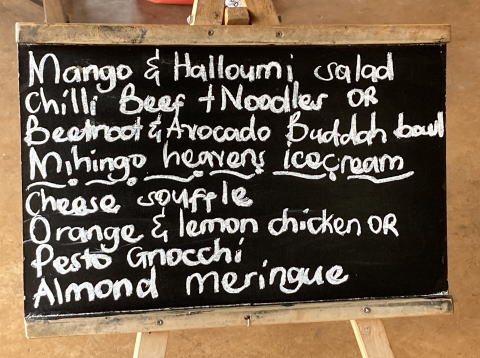 Mango & Halloumi salad
Chilli Beef + Noodles OR
Beetroot & Avocado Buddah bowl
Mihingo heavens icecream
Cheese souffle
Orange & lemon chicken OR
Pesto Gnocchi
Almond meringue